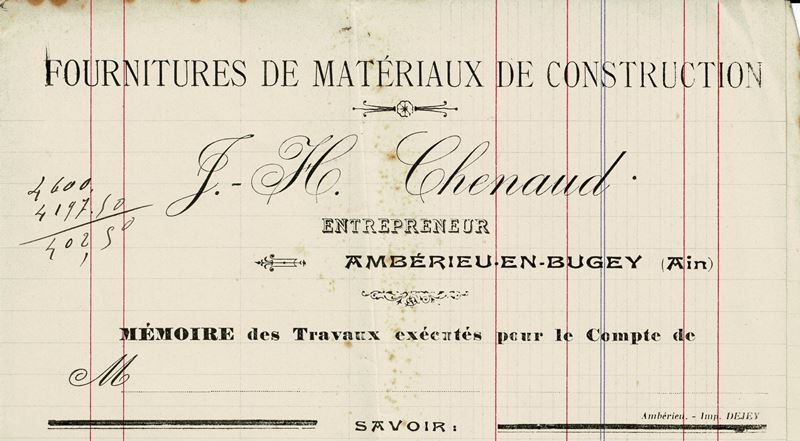 FOURNITURES DE MATÉRIAUX DE CONSTRUCTION
J.-H. Chenaud.
4600.
4197.50
402,50
ENTREPRENEUR
AMBÉRIEU-EN-BUGEY (Ain)
MÉMOIRE des Travaux exécutés pour le Compte de
M
Ambérieu. - Imp. DEJEY
SAVOIR: